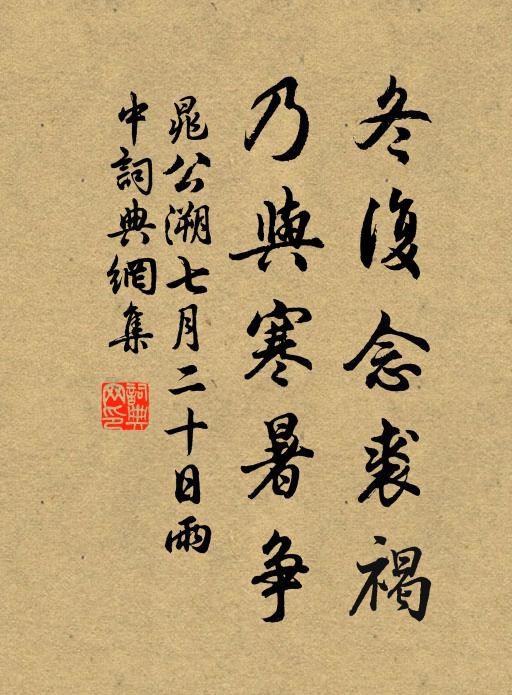 冬復念裘褐
乃與寒暑争
晁公溯七月二十日雨
中詞典網集
詞典
网印